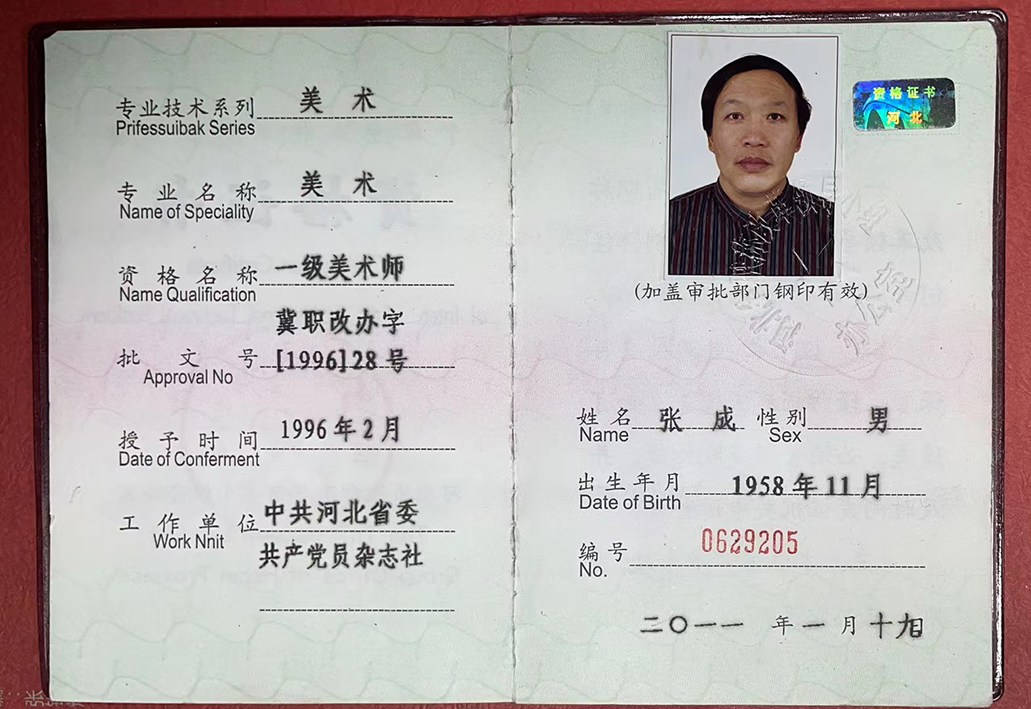 专业技术系列 美 术
Prifessuibak Series
专 业 名 称 美 术
Name of Speciality
资 格 名 称 一级美术师
Name Qualification
冀职改办字
批 文 号 [1996]28 号
Approval No
授 予 时 间 1996 年 2 月
Date of Conferment
工 作 单 位 中共河北省委
Work Nnit
共产党员杂志社
资格证书
河 北
(加盖审批部门钢印有效)
姓 名 张 成 性 别 男
Name Sex
出 生 年 月 1958 年 11 月
Date of Birth
编 号 0629205
No.
二〇一一 年 一 月 十九日